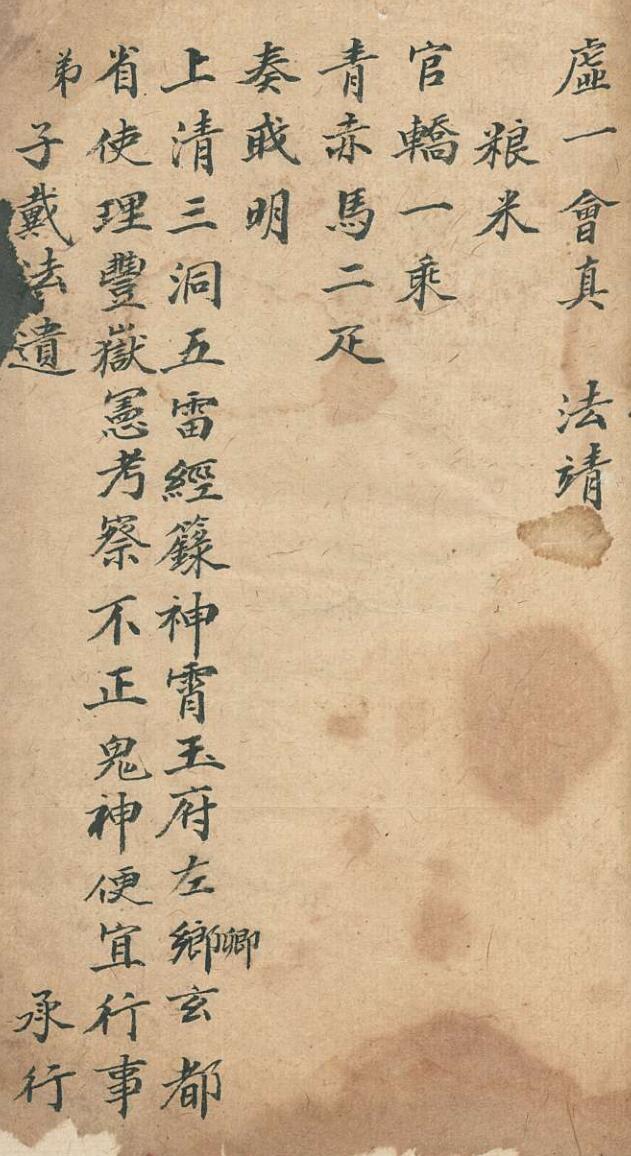 虛一會真 法靖
粮米
官轎一乘
青赤馬二疋
奏戓明
上清三洞五雷經籙神霄玉府左鄉卿玄都
省使理豐嶽憲考察不正鬼神便宜行事
弟子戴法遺 承行